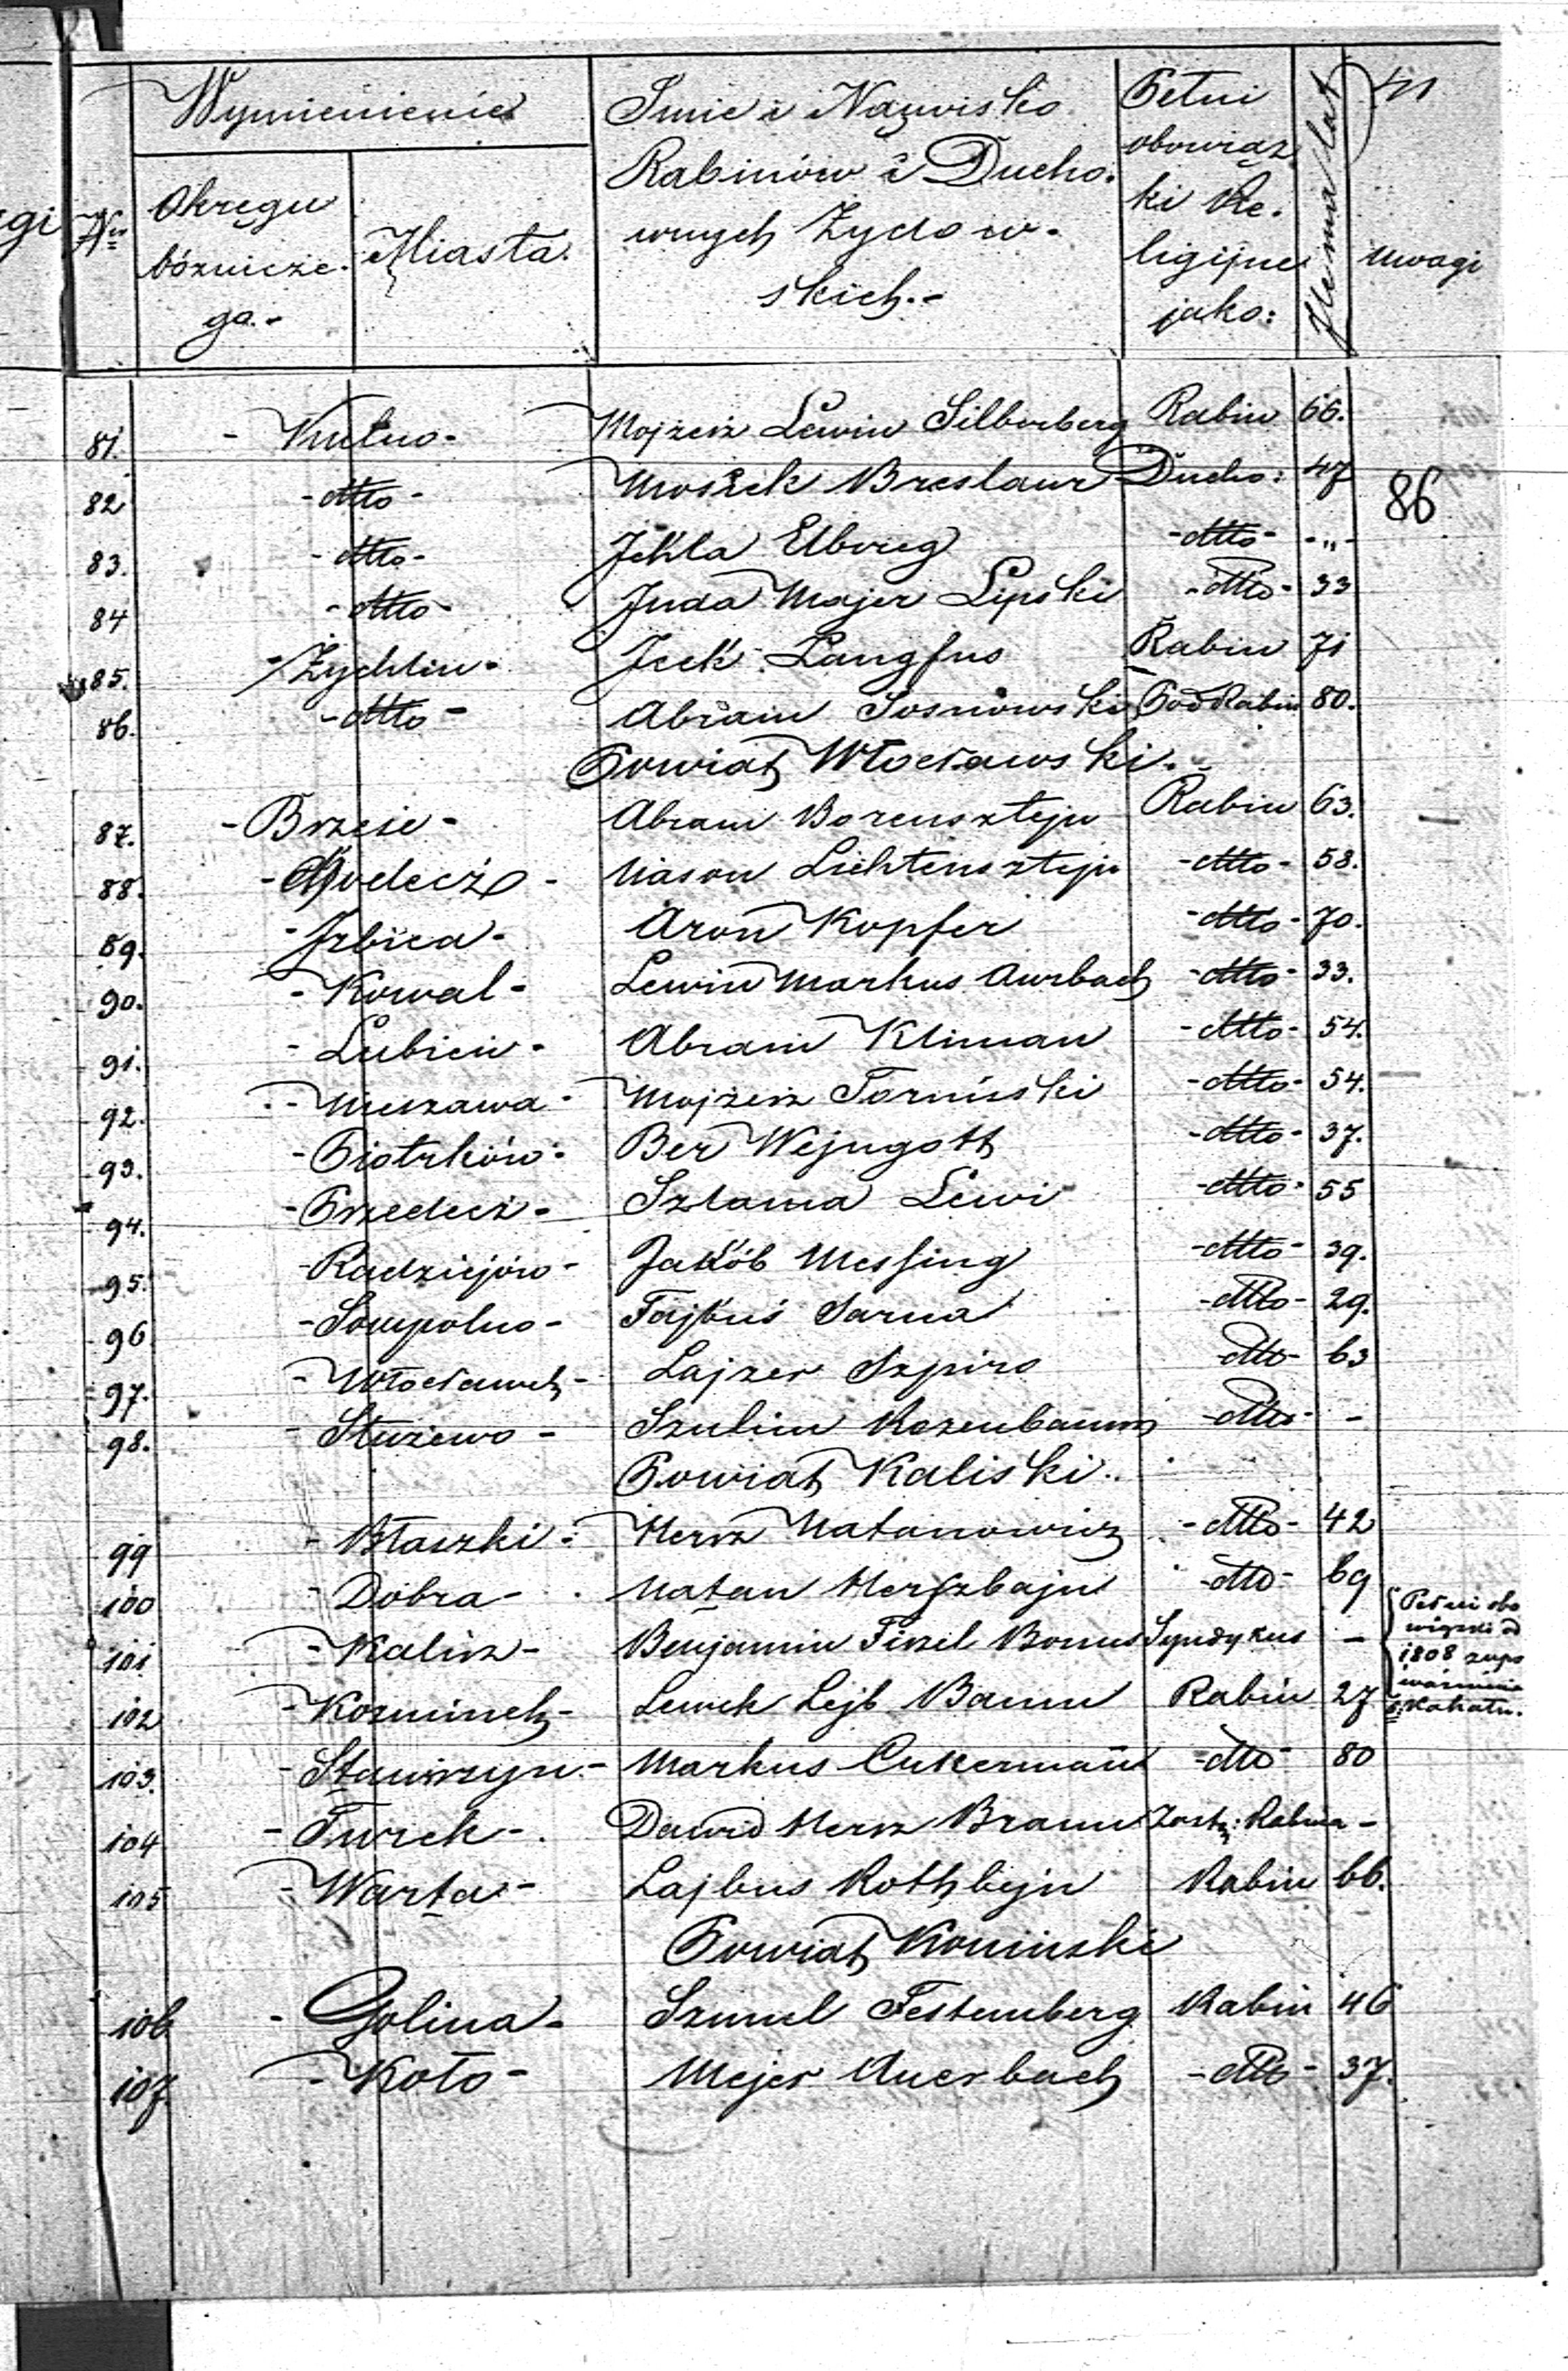 41
Wymienienie
Imie i Nazwisko Rabinów i Ducho. wnych Żydow. skich.-
Pełni obowiąz. ki Re. ligijne jako:
Ile ma lat
Uwagi
gi
Nr
Okręgu bóżnicze. go.-
Miasta.
81. - Kutno - Mojżesz Lewin Silberberg Rabin 66.
82 - dtto - Moszek Breslauer Ducho: 47
86
83. - dtto - Jekla Elbreg - dtto - - „ -
84 - dtto - Juda Majer Lipski - dtto - 33
85. - Żychlin - Icek Langfus Rabin 71
86. - dtto - Abram Sosnowski Pod Rabin 80.
Powiat Włocławski.-
87. - Brześć - Abram Borensztejn Rabin 63.
88. - Chodecz - Nason Lichtensztejn - dtto - 58.
89. - Izbica - Aron Kopfer - dtto - 70.
90. - Kowal - Lewin Markus Aurbach - dtto - 33.
91. - Lubień - Abram Kliman - dtto - 54.
92. - Nieszawa - Mojżesz Toruński - dtto - 54.
93. - Piotrków - Ber Wejngott - dtto - 37.
94. - Przedecz - Szlama Lewi - dtto - 55
95. - Radziejów - Jakób Messing - dtto - 39.
96 - Sompolno - Fajbuś Sarna - dtto - 29.
97. - Włocławek - Lajzer Szpiro - dtto - 63
98. - Służewo - Szulim Rozenbaum - dtto - -
Powiat Kaliski.
99 - Błaszki - Hersz Natanowicz - dtto - 42
100 - Dobra - Natan Herszbajn - dtto - 69
101 - Kalisz - Benjamin Fiszel Bonus Syndykus -
Pełni obo wiązki od 1808 z upo ważnienia b: Kahału.
102 - Kozminek - Lewek Lejb Baum Rabin 27
103. - Stawiszyn - Markus Cukermann - dtto - 80
104 - Turek - Dawid Hersz Braun Zastę: Rabina -
105 - Warta - Lajbus Rothbejn Rabin 66.
Powiat Koniński
106 - Golina - Szmul Festemberg Rabin 46
107. - Koło - Mejer Auerbach - dtto - 37.